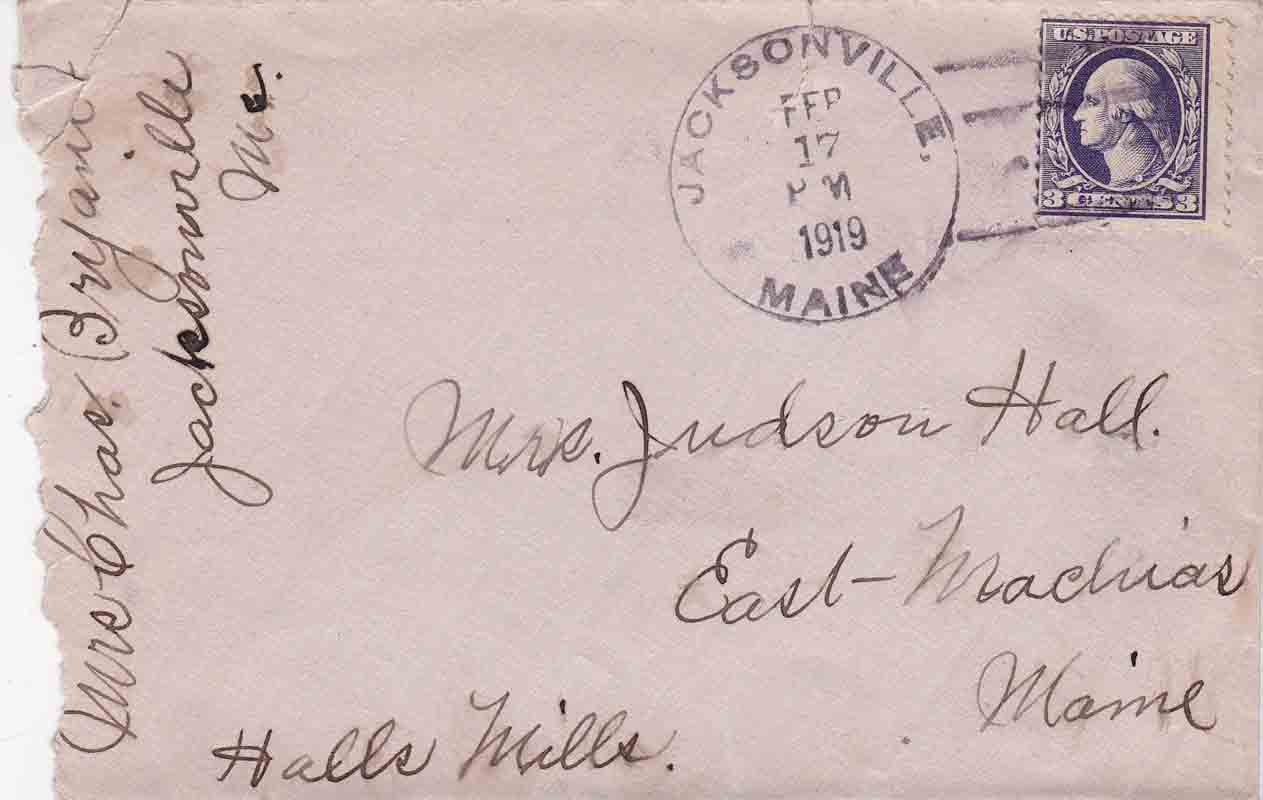 Mrs Chas. Bryant
Jacksonville
Me.
JACKSONVILLE,
FEB
17
PM
1919
MAINE
U.S. POSTAGE
3 CENTS 3
Mrs. Judson Hall.
East-Machias
Maine
Halls Mills.